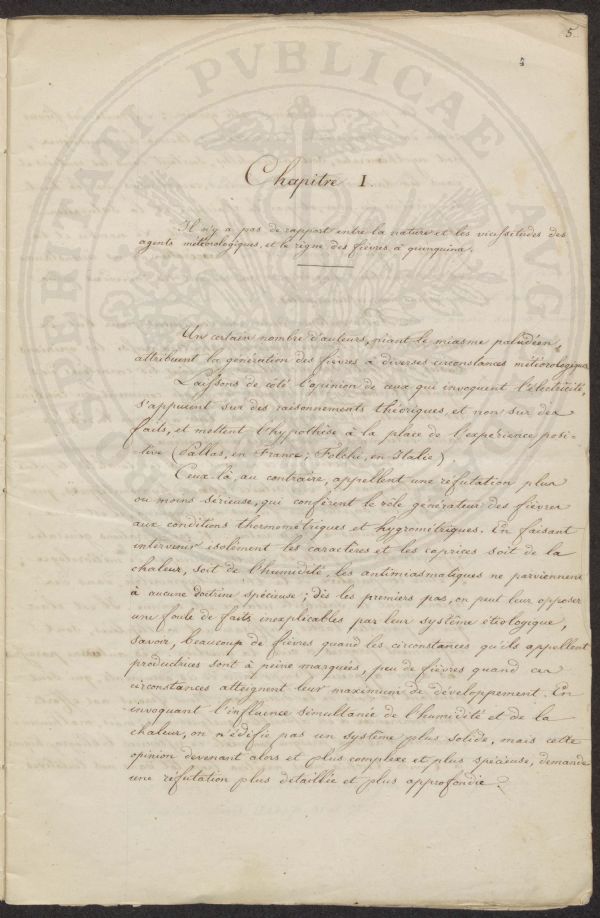 5
5
Chapitre I.
Il n'y a pas de rapport entre la nature et les vicissitudes des
agents météorologiques, et le règne des fièvres à quinquina.
Un certain nombre d'auteurs, niant le miasme paludéen,
attribuent la génération des fièvres à diverses circonstances météorologiques.
Laissons de côté l'opinion de ceux qui invoquent l'électricité,
s'appuient sur des raisonnements théoriques, et non sur des
faits, et mettent l'hypothèse à la place de l'expérience posi-
-tive (Pallas, en France; Folchi, en Italie).
Ceux-là, au contraire, appellent une réfutation plus
ou moins sérieuse, qui confèrent le rôle générateur des fièvres
aux conditions thermométriques et hygrométriques. En faisant
intervenir isolément les caractères et les caprices soit de la
chaleur, soit de l'humidité, les antimiasmatiques ne parviennent
à aucune doctrine spécieuse; dès les premiers pas, on peut leur opposer
une foule de faits inexplicables par leur système étiologique,
savoir, beaucoup de fièvres quand les circonstances qu'ils appellent
productrices sont à peine marquées, peu de fièvres quand ces
circonstances atteignent leur maximum de développement. En
invoquant l'influence simultanée de l'humidité et de la
chaleur, on n'édifie pas un système plus solide, mais cette
opinion devenant alors et plus complexe et plus spécieuse, demande
une réfutation plus détaillée et plus approfondie.